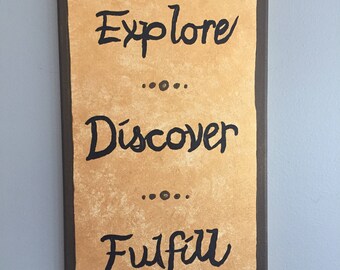 Explore
Discover
Fulfill